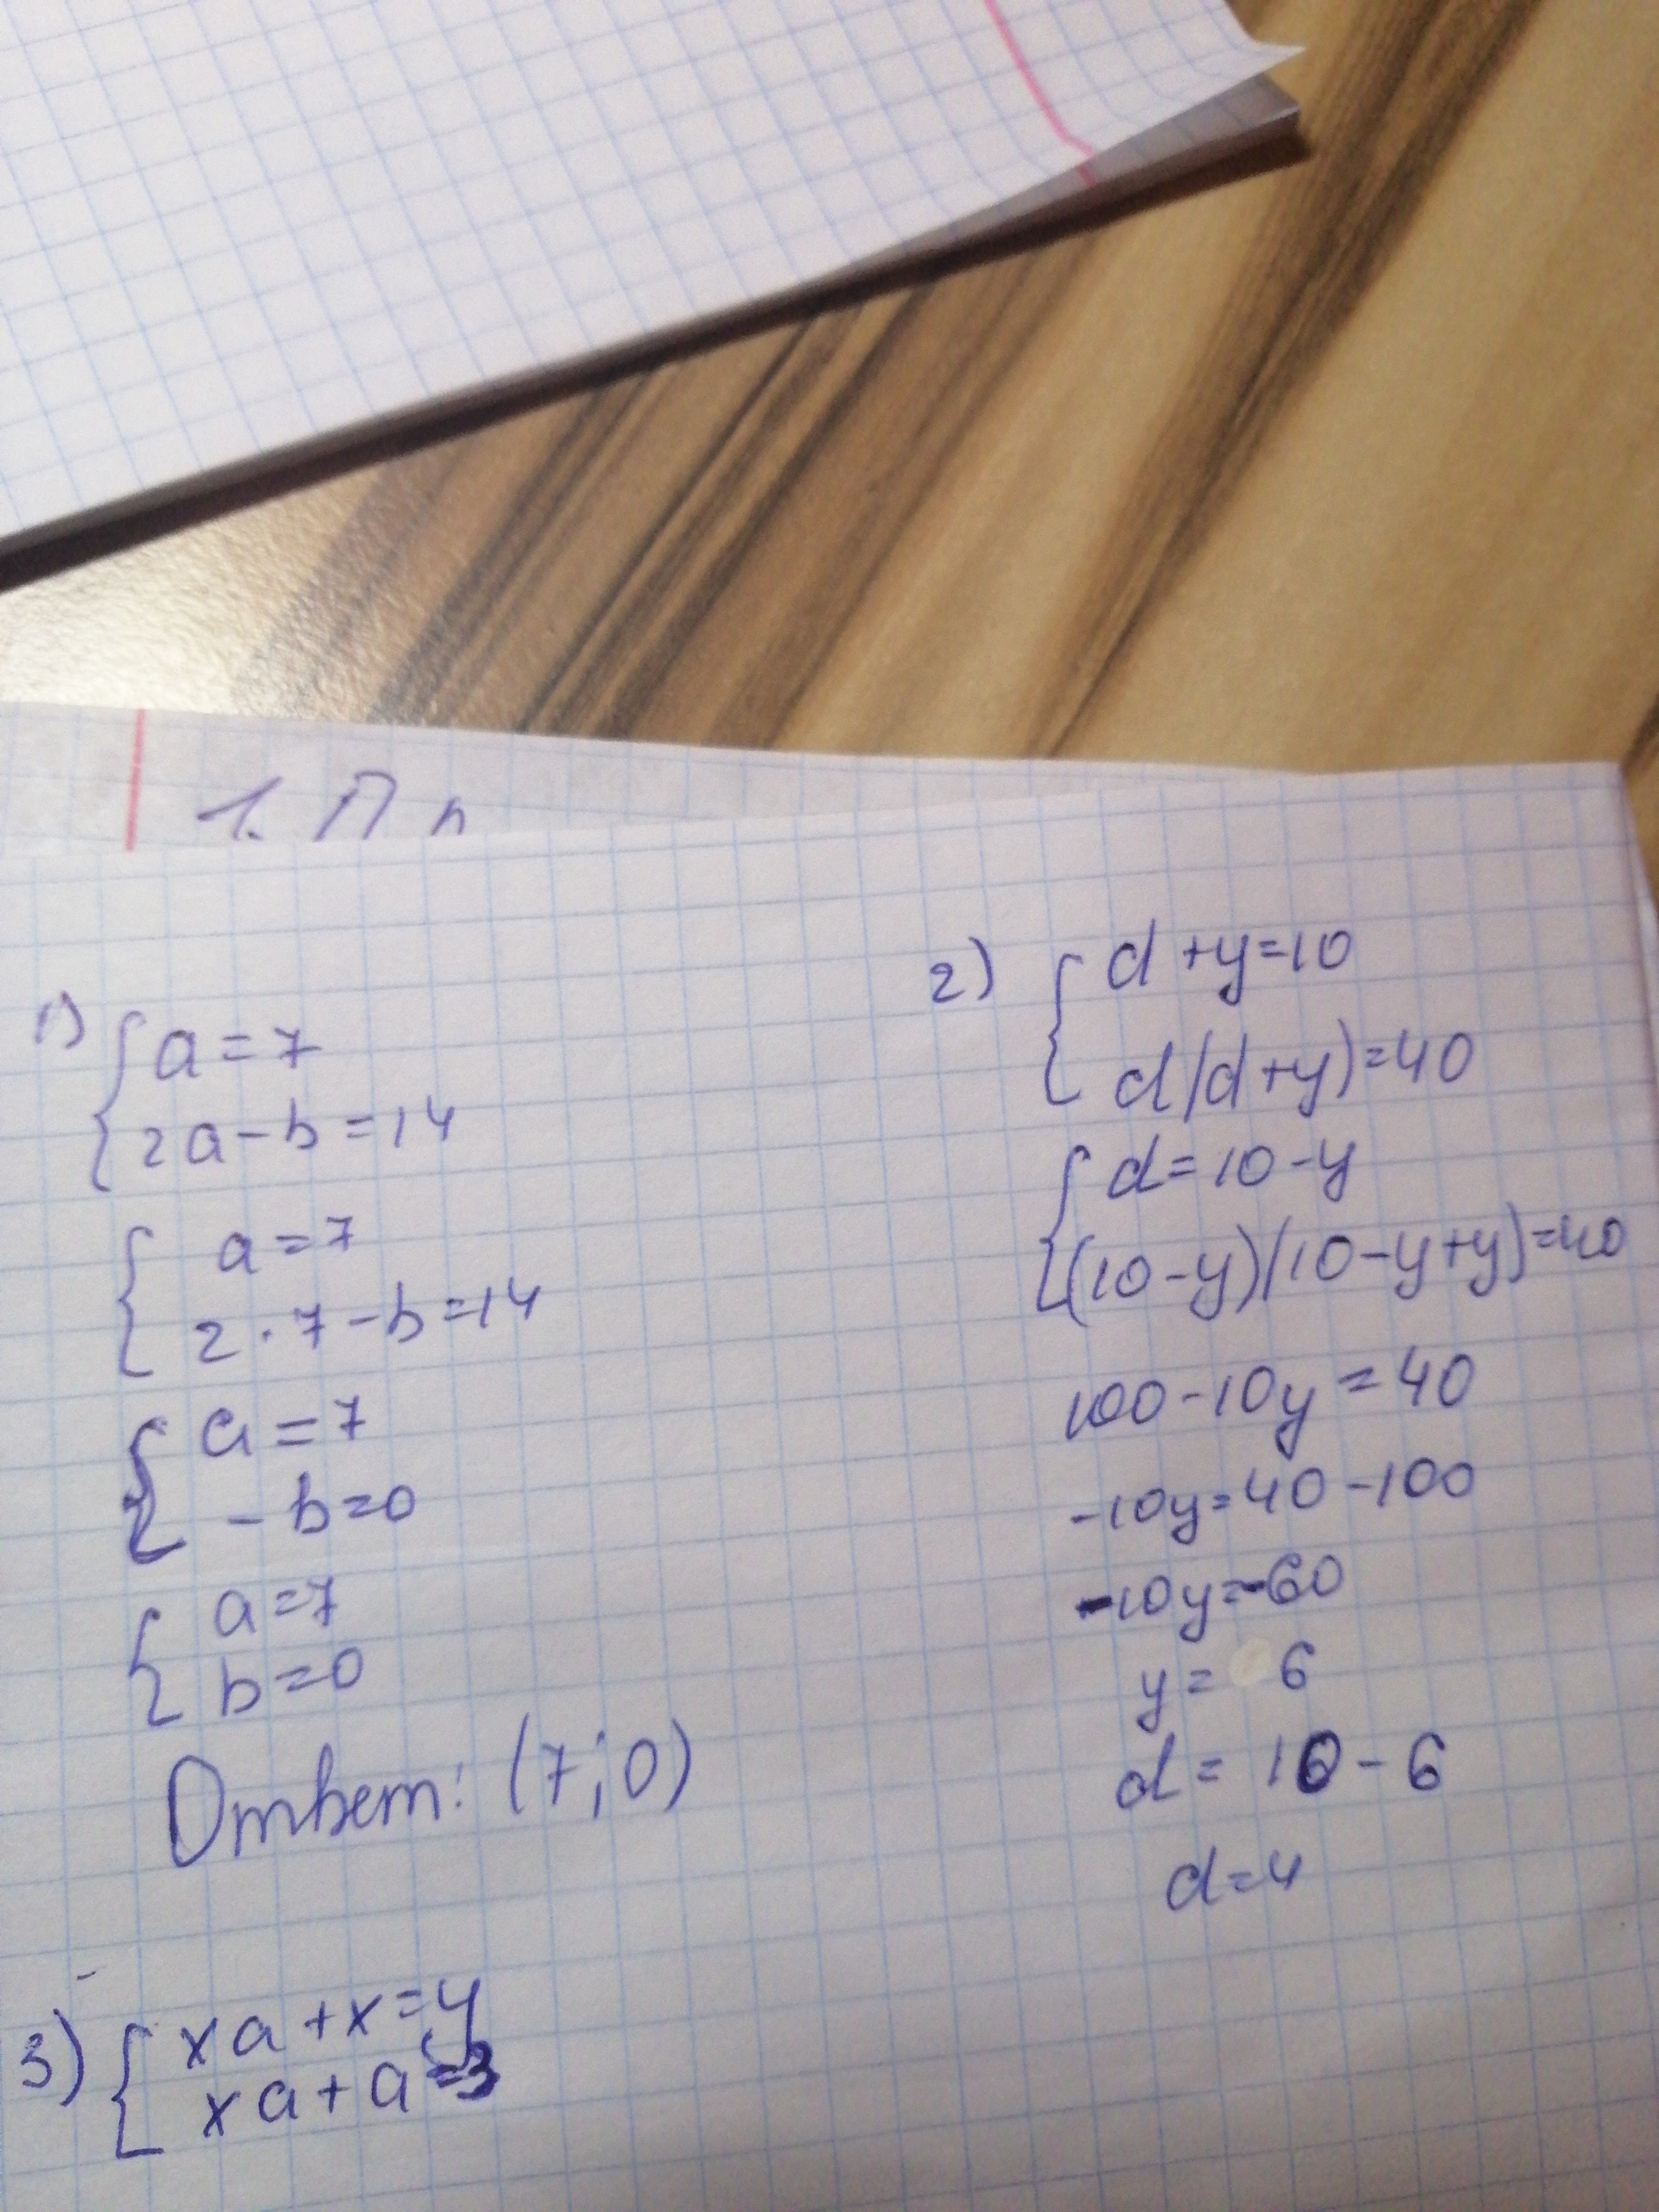 1. П п
1) { a = 7
2a - b = 14
{ a = 7
2 · 7 - b = 14
{ a = 7
- b = 0
{ a = 7
b = 0
Ответ: (7; 0)
2) { d + y = 10
d(d + y) = 40
{ d = 10 - y
(10 - y)(10 - y + y) = 40
100 - 10y = 40
-10y = 40 - 100
-10y = -60
y = 6
d = 10 - 6
d = 4
3) { xa + x = 4
xa + a = 3